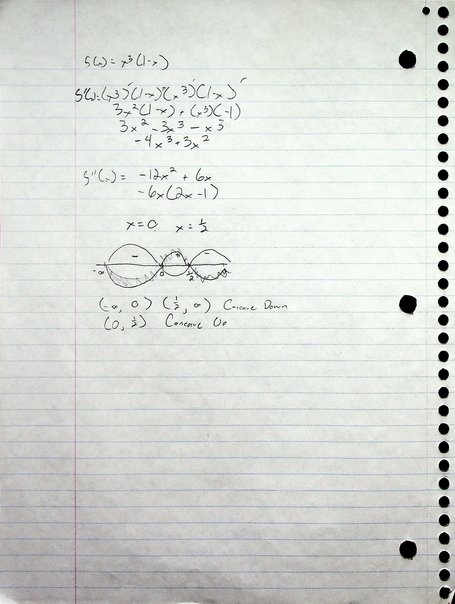 f(x) = x³(1-x)
f'(x) = (x³)'(1-x) + (x³)(1-x)'
3x²(1-x) + (x³)(-1)
3x² - 3x³ - x³
-4x³ + 3x²
f''(x) = -12x² + 6x
-6x(2x-1)
x=0 x=½
- + -
-∞ 0 ½ ∞
(-∞, 0) (½, ∞) Concave Down
(0, ½) Concave Up